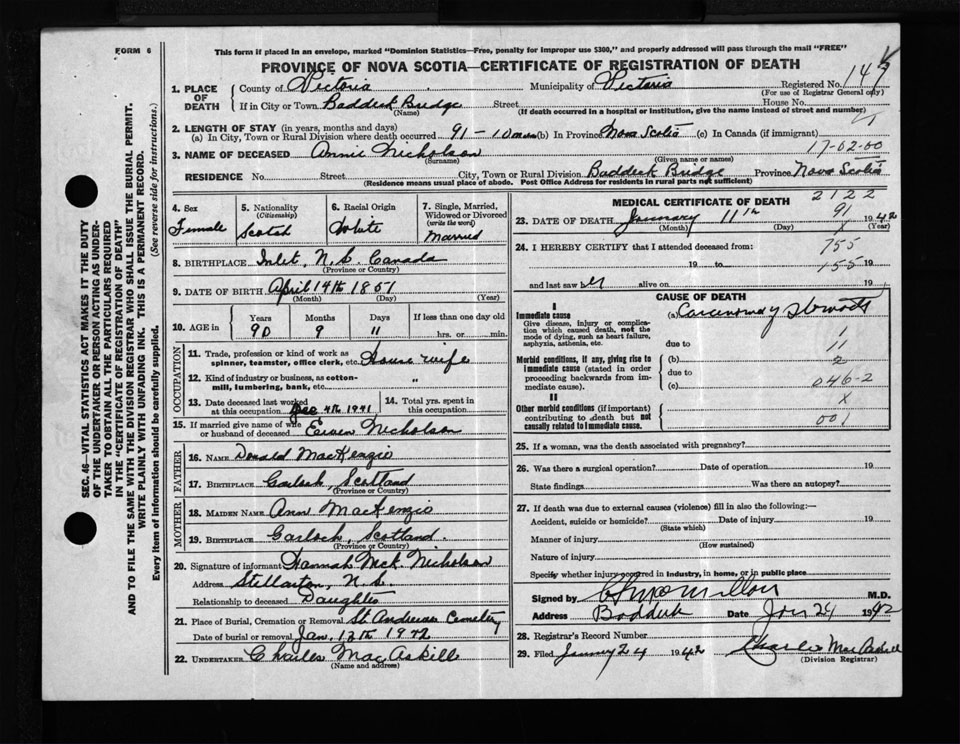 FORM 6
This form if placed in an envelope, marked "Dominion Statistics—Free, penalty for improper use $300," and properly addressed will pass through the mail "FREE"
PROVINCE OF NOVA SCOTIA—CERTIFICATE OF REGISTRATION OF DEATH
SEC. 46—VITAL STATISTICS ACT MAKES IT THE DUTY
OF THE UNDERTAKER OR PERSON ACTING AS UNDER-
TAKER TO OBTAIN ALL THE PARTICULARS REQUIRED
IN THE "CERTIFICATE OF REGISTRATION OF DEATH"
AND TO FILE THE SAME WITH THE DIVISION REGISTRAR WHO SHALL ISSUE THE BURIAL PERMIT.
WRITE PLAINLY WITH UNFADING INK. THIS IS A PERMANENT RECORD.
Every item of information should be carefully supplied. (See reverse side for instructions.)
1. PLACE OF DEATH
County of Victoria Municipality of Victoria Registered No. 147
(For use of Registrar General only)
If in City or Town Baddeck Bridge Street House No.
(Name) (If death occurred in a hospital or institution, give the name instead of street and number)
2. LENGTH OF STAY (in years, months and days)
(a) In City, Town or Rural Division where death occurred 91 - 10 (b) In Province Nova Scotia (c) In Canada (if immigrant)
17-02-00
3. NAME OF DECEASED Annie Nicholson
(Surname) (Given name or names)
RESIDENCE No. Street City, Town or Rural Division Baddeck Bridge Province Nova Scotia
(Residence means usual place of abode. Post Office Address for residents in rural parts not sufficient)
4. Sex
Female
5. Nationality
(Citizenship)
Scotch
6. Racial Origin
White
7. Single, Married,
Widowed or Divorced
(write the word)
Married
8. BIRTHPLACE Inlet, N.S. Canada
(Province or Country)
9. DATE OF BIRTH April 14th 1851
(Month) (Day) (Year)
10. AGE in
Years Months Days If less than one day old
90 9 11 hrs. or min.
OCCUPATION
11. Trade, profession or kind of work as
spinner, teamster, office clerk, etc. House wife
12. Kind of industry or business, as cotton-
mill, lumbering, bank, etc. "
13. Date deceased last worked
at this occupation Dec 4th 1941
14. Total yrs. spent in
this occupation
15. If married give name of wife
or husband of deceased Ewen Nicholson
FATHER
16. NAME Donald MacKenzie
17. BIRTHPLACE Garloch, Scotland
(Province or Country)
MOTHER
18. MAIDEN NAME Ann MacKenzie
19. BIRTHPLACE Garloch, Scotland.
(Province or Country)
20. Signature of informant Hannah McK. Nicholson
Address Stellarton, N.S.
Relationship to deceased Daughter
21. Place of Burial, Cremation or Removal St Andrews Cemetery
Date of burial or removal Jan. 13th 1942
22. UNDERTAKER Charles MacAskill
(Name and address)
MEDICAL CERTIFICATE OF DEATH 2122
23. DATE OF DEATH January 11th 91 1942
(Month) (Day) (Year)
24. I HEREBY CERTIFY that I attended deceased from:
755
19 to 155 19
and last saw alive on 19
CAUSE OF DEATH
I
Immediate cause
Give disease, injury or complica-
tion which caused death, not the
mode of dying, such as heart failure,
asphyxia, asthenia, etc.
Morbid conditions, if any, giving rise to
immediate cause (stated in order
proceeding backwards from im-
mediate cause).
II
Other morbid conditions (if important)
contributing to death but not
causally related to immediate cause.
(a) Carcinoma of Stomach
due to
(b)
due to
(c)
1
11
2
046-2
X
001
25. If a woman, was the death associated with pregnancy?
26. Was there a surgical operation? Date of operation 19
State findings Was there an autopsy?
27. If death was due to external causes (violence) fill in also the following:—
Accident, suicide or homicide? Date of injury 19
(State which)
Manner of injury
(How sustained)
Nature of injury
Specify whether injury occurred in industry, in home, or in public place
Signed by McMillan M.D.
Address Baddeck Date Jan 24 1942
28. Registrar's Record Number
29. Filed January 24 1942 Charles MacAskill
(Division Registrar)